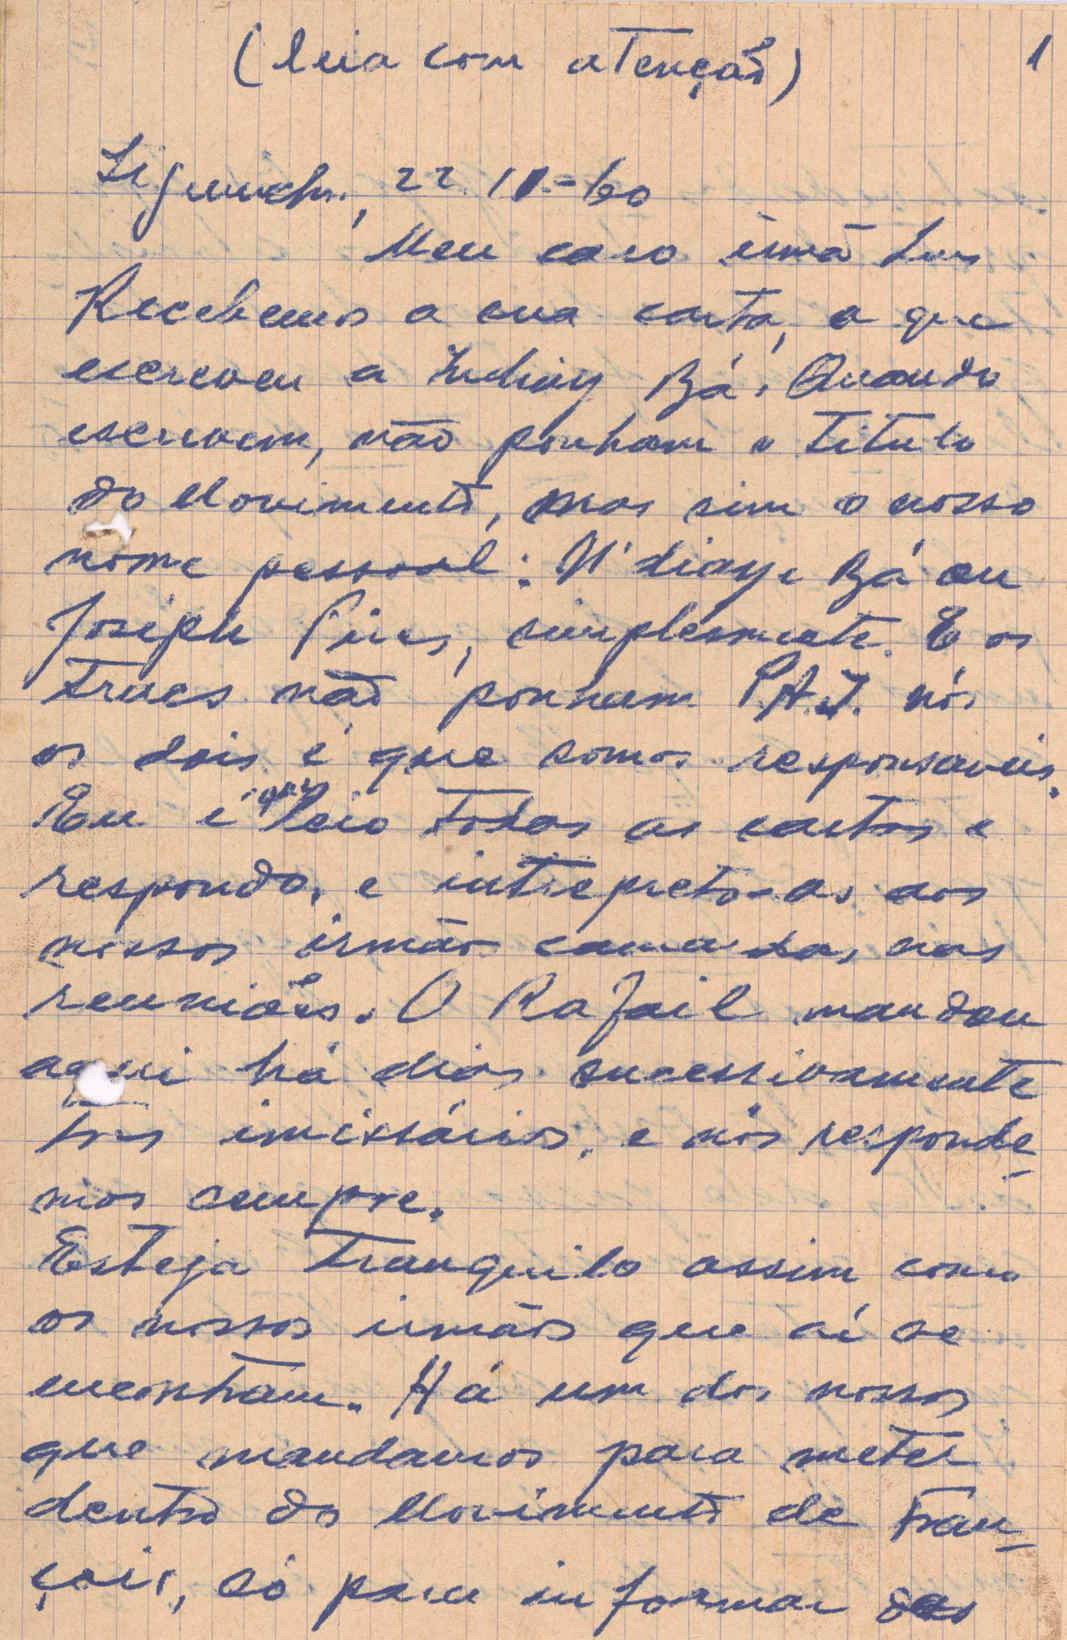 (leia com atenção)
1
Ziguinchor, 22.11.-60
Meu caro irmã Luis
Recebemos a cua carta, a que
escreveu a Indiay Bá. Quando
escrevem, não ponham o titulo
do Movimento, mas sim o nosso
nome pessoal: N'diaye Bá ou
Joseph Pires, simplesmente. E os
tracs não ponham P.A.I. nós
os dois é que somos responsaveis.
Eu é que leio todas as cartas e
respondo, e intrepreto-as aos
nossos irmãos camaradas, nas
reuniões. O Rafail mandou
aqui há dias sucessivamente
tres imissários, e nós responde-
mos cempre.
Esteja tranquilo assim como
os nossos irmãos que aí se
encontram. Há um dos nossos
que mandamos para meter
dentro do Movimento de Fran-
çois, só para informar